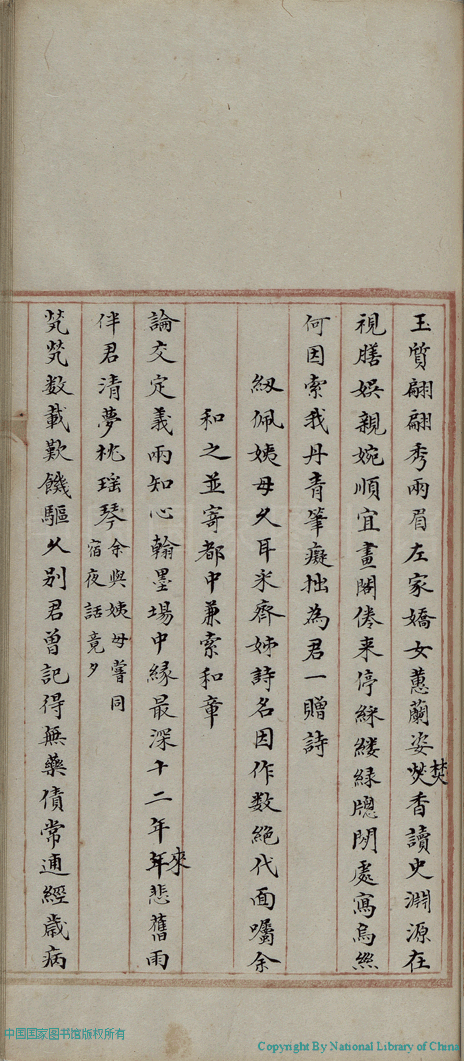 玉質翩翩秀兩眉左家嬌女蕙蘭姿焚香讀史淵源在
視膳娛親婉順宜畫閣倦来停綵縷緑牕閒處寫烏絲
何因索我丹青筆癡拙為君一贈詩
紉佩姨母久耳氷齊姊詩名因作数絶代面囑余
和之並寄都中兼索和章
論交定義兩知心翰墨場中緣最深十二年來悲舊雨
伴君清夢枕瑶琴余與姨母嘗同宿夜話竟夕
煢煢数載歎饑驅久别君曾記得無藥債常逋經歲病
中国国家图书馆版权所有
Copyright By National Library of China